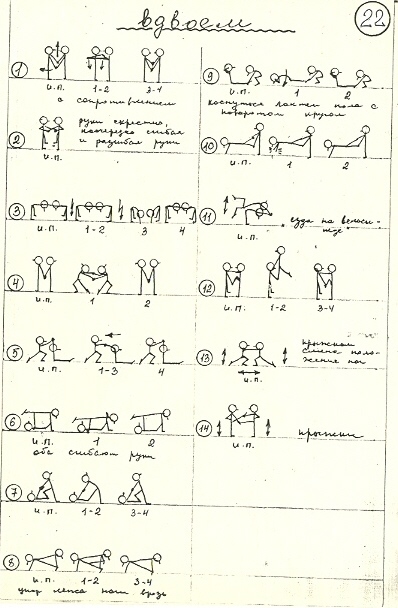 вдвоем
22
1
и.п. 1-2 3-4
с сопротивлением
2
руки скрестно,
поочередно сгибая
и разгибая руки
и.п.
3
и.п. 1-2 3 4
4
и.п. 1 2
5
и.п. 1-3 4
6
и.п. 1 2
оба сгибают руки
7
и.п. 1-2 3-4
8
и.п. 1-2 3-4
лежа ноги врозь
9
и.п. 1 2
коснуться локтем пола с
поворотом кругом
10
и.п. 1 2
11
и.п.
"езда на велоси-
педе"
12
и.п. 1-2 3-4
13
и.п.
прыжком
смена поло-
жения ног
14
и.п.
прыжки